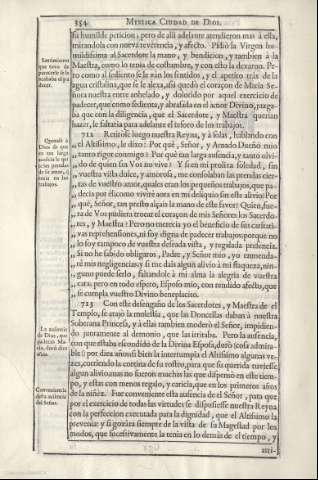 354 MYSTICA CIUDAD DE DIOS.
su humilde peticion; pero de alli adelante atendieron mas à ella,
mirandola con nueva reverencia, y afecto. Pidiò la Virgen hu-
mildissima al Sacerdote la mano, y bendicion, y tambien à la
Maestra, como lo tenia de costumbre, y con esto la dexaron. Pe-
ro como al sediento se le van los sentidos, y el apetito tràs de la
agua cristalina, que se le alexa, assi quedò el coraçon de Maria Se-
ñora nuestra entre anhelado, y dolorido por aquel exercicio de
padecer, que como sedienta, y abrasada en el amor Divino, juzga-
ba que con la diligencia, que el Sacerdote, y Maestra querian
hazer, le faltaria para adelante el tesoro de los trabajos.
712 Retiròse luego nuestra Reyna, y à solas, hablando con
el Altissimo, le dixo: Por què, Señor, y Amado Dueño mio
tanto rigor conmigo? Por què tan larga ausencia, y tanto olvi-
do de quien sin Vos no vive? Y si en mi prolixa soledad, sin
vuestra vista dulce, y amorosa, me consolaban las prendas cier-
tas de vuestro amor, quales eran los pequeños trabajos, que pa-
decia por èl; como vivirè aora en mi deliquio sin este alivio? Por
què, Señor, tan presto alçais la mano de este favor? Quien, fue-
ra de Vos pudiera trocar el coraçon de mis Señores los Sacerdo-
tes, y Maestra? Pero no merecia yo el beneficio de sus caritati-
vas reprehensiones, ni soy digna de padecer trabajos; porque no
lo soy tampoco de vuestra deseada vista, y regalada presencia.
Si no he sabido obligaros, Padre, y Señor mio, yo enmenda-
rè mis negligencias; y si me dais algun alivio à mi flaqueza, nin-
guno puede serlo, faltandole à mi alma la alegria de vuestra
cara; pero en todo espero, Esposo mio, con rendido afecto, que
se cumpla vuestro Divino beneplacito.
713 Con este desengaño de los Sacerdotes, y Maestra de el
Templo, se atajò la molestia, que las Doncellas daban à nuestra
Soberana Princesa, y à ellas tambien moderò el Señor, impidien-
do juntamente al demonio, que las irritaba. Pero la ausencia,
con que estaba escondido de la Divina Esposa, durò (cosa admira-
ble!) por diez años; si bien la interrumpia el Altissimo algunas ve-
zes, corriendo la cortina de su rostro, para que su querida tuviesse
algun alivio; mas no fueron muchas las que dispensò en este tiem-
po, y estas con menos regalo, y caricia, que en los primeros años
de la niñez. Fue conveniente esta ausencia de el Señor, para que
por el exercicio de todas las virtudes se dispusiesse nuestra Reyna
con la perfeccion executada para la dignidad, que el Altissimo la
prevenia: y si gozàra siempre de la vista de su Magestad por los
modos, que sucessivamente la tenia en lo demàs de el tiempo, y